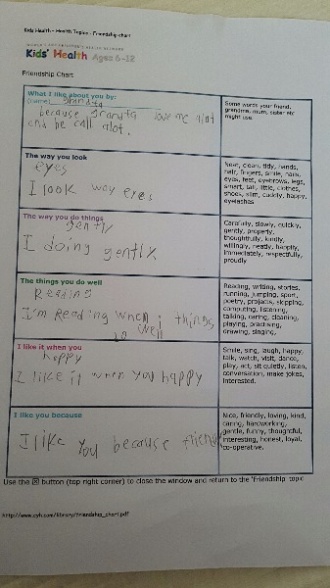 Kids Health - Health Topics - Friendship chart
Kids' Health Ages 6-12
Friendship Chart
What I like about you by:
(name) Grandta
because Grandta love me alot
and be call alot.
Some words your friend,
grandma, mum, sister etc
might use
The way you look
eyes
I look way eyes
Neat, clean, tidy, hands,
hair, fingers, smile, nose,
eyes, feet, eyebrows, legs,
smart, tall, little, clothes,
shoes, slim, cuddly, happy,
eyelashes
The way you do things
gently
I doing gently
Carefully, slowly, quickly,
gently, properly,
thoughtfully, kindly,
willingly, neatly, happily,
immediately, respectfully,
proudly
The things you do well
Reading
I'm Reading when i things
so well
Reading, writing, stories,
running, jumping, sport,
poetry, projects, skipping,
computing, listening,
talking, caring, cleaning,
playing, practising,
drawing, singing,
I like it when you
happy
I like it when you happy
Smile, sing, laugh, happy,
talk, watch, visit, dance,
play, act, sit quietly, listen,
conversation, make jokes,
interested.
I like you because
I like you because friend
Nice, friendly, loving, kind,
caring, hardworking,
gentle, funny, thoughtful,
interesting, honest, loyal,
co-operative.
Use the button (top right corner) to close the window and return to the 'Friendship' topic
http://www.cyh.com/library/friendship_chart.pdf